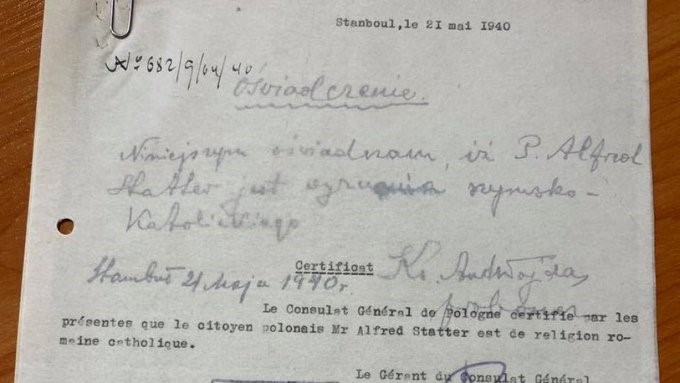 Stanboul,le 21 mai 1940
No 682/9/04/40
Oświadczenie.
Niniejszym oświadczam, iż P. Alfred
Statter jest wyznania rzymsko-
Katolickiego
Stambuł 21 Maja 1940 r.
Ks.
Certificat
Le Consulat Général de Pologne certifie par les
présentes que le citoyen polonais Mr Alfred Statter est de religion ro-
maine catholique.
Le Gérant du Consulat Général